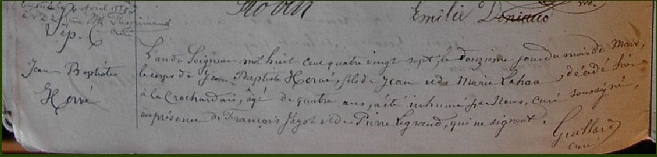 Robin
Emilie
Sép. C
Jean Baptiste
Hervé
L'an du Seigneur mil huit cent quatre vingt sept, le douzième jour du mois de Mars,
le corps de Jean Baptiste Hervé, fils de Jean et de Marie Lahaa, décédé hier
à la Crochardais, âgé de quatre ans, a été inhumé par Nous, curé soussigné,
en présence de François Jagot et de Pierre Legrand, qui ne signent.
Guillard
curé